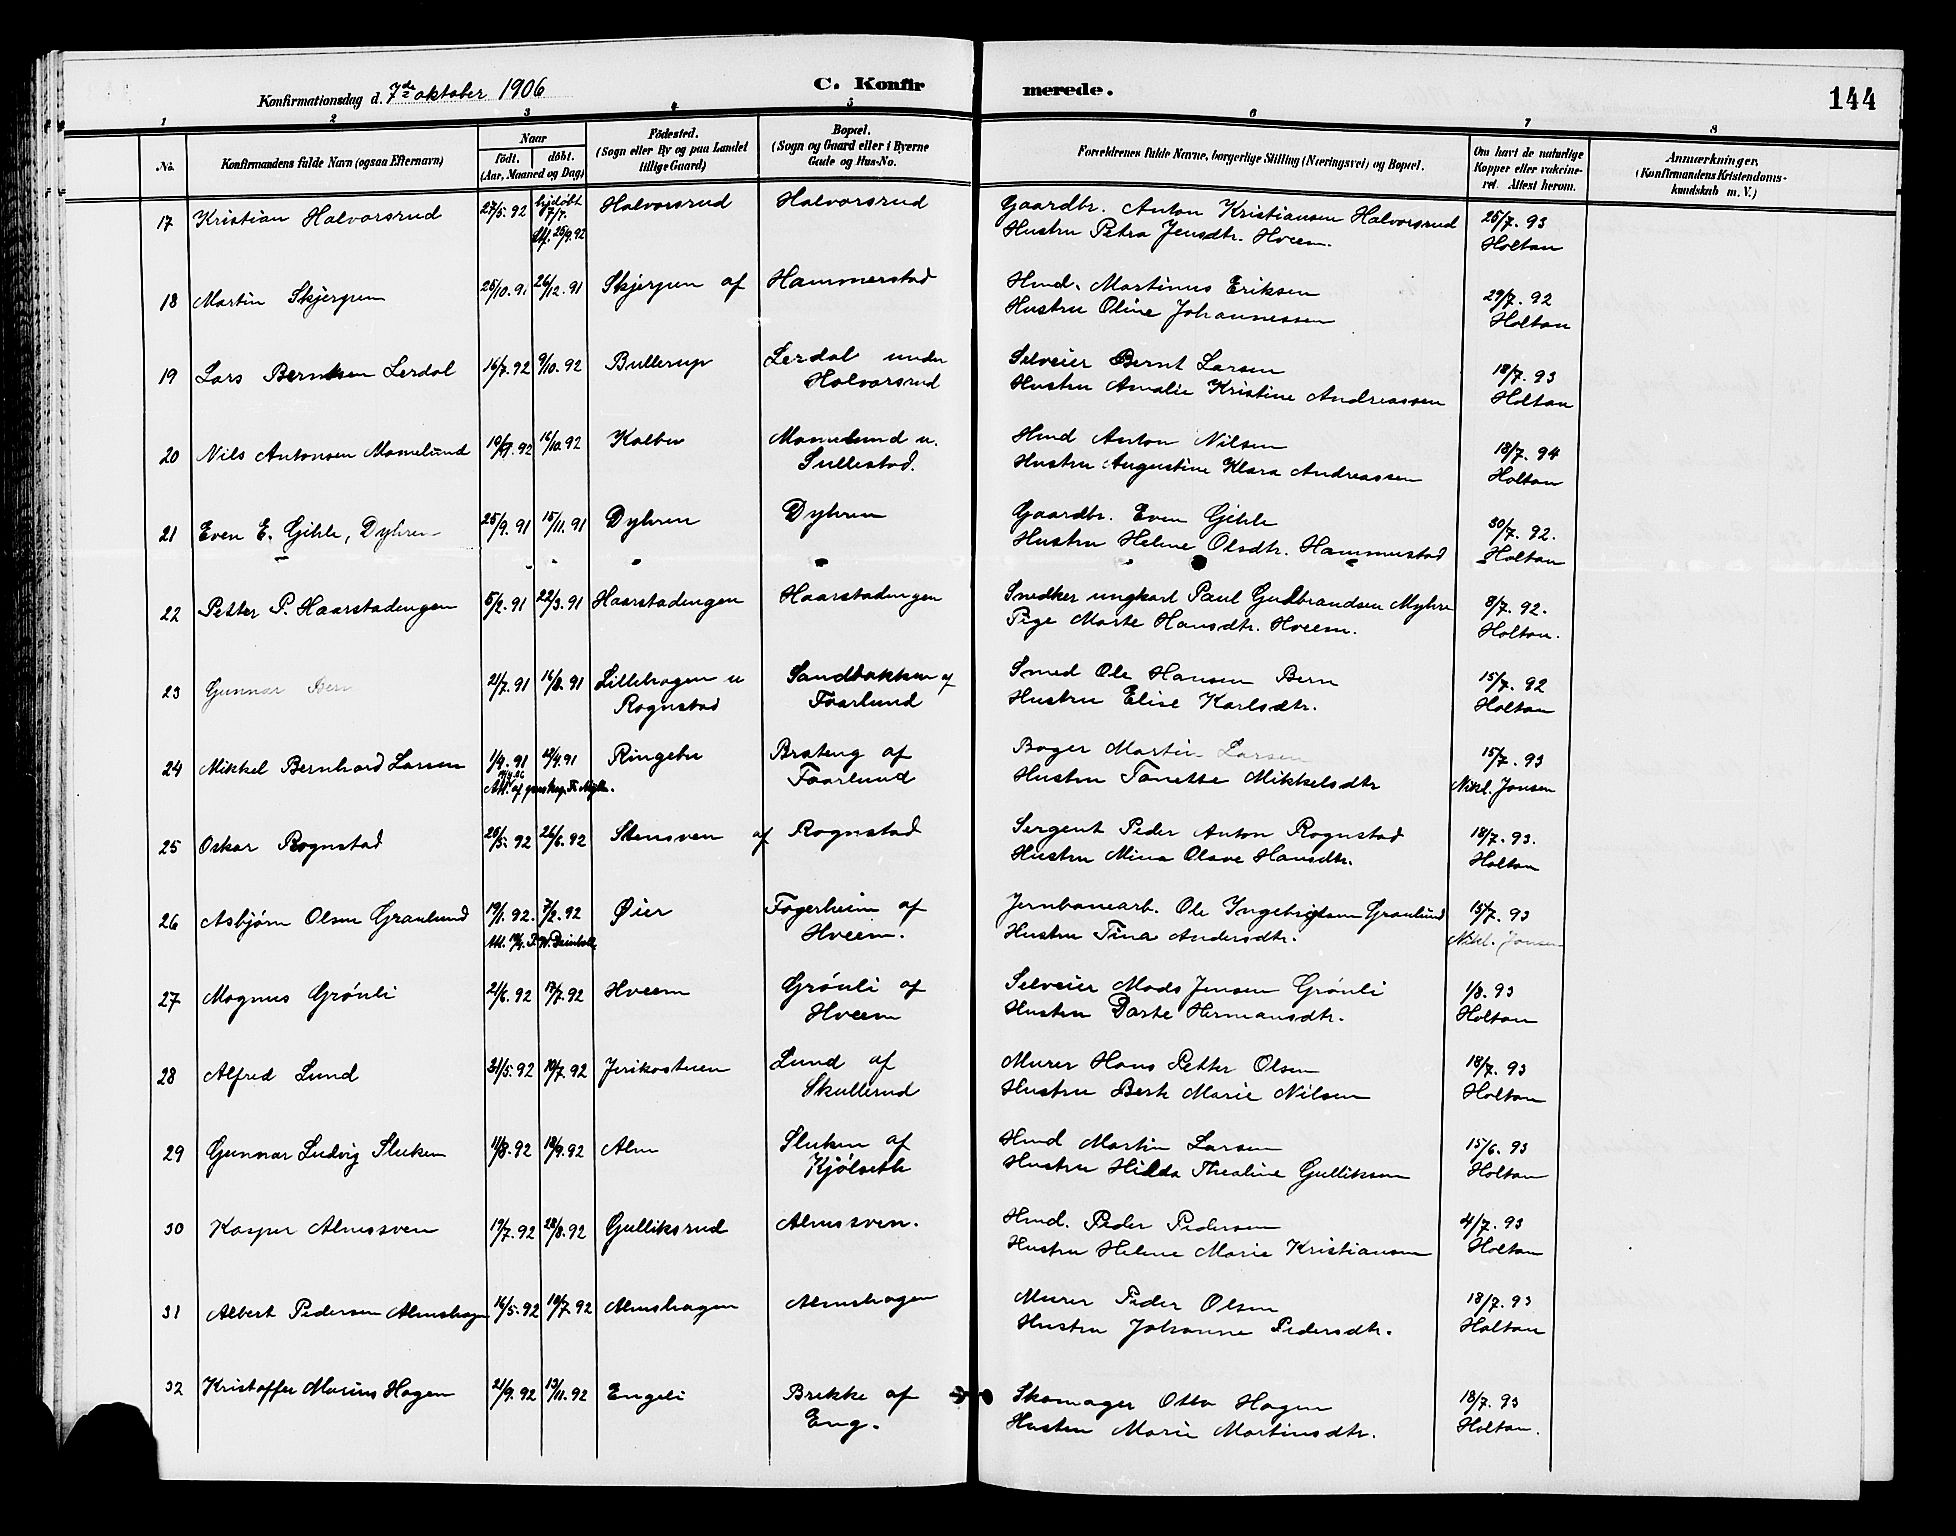 Konfirmationsdag d. 7de oktober 1906
C. Konfirmerede.
144
1 2 3 4 5 6 7 8
No. Konfirmandens fulde Navn (ogsaa Efternavn) Naar født. døbt. (Aar, Maaned og Dag) Fødested. (Sogn eller By og paa Landet tillige Gaard) Bopæl. (Sogn og Gaard eller i Byerne Gade og Hus-No. Forældrenes fulde Navne, borgerlige Stilling (Næringsvei) og Bopæl. Om havt de naturlige Kopper eller vaccineret. Attest herom. Anmærkninger. (Konfirmandens Kristendomskundskab m. V.)
17 Kristian Halvorsrud 27/5. 92 hjdøbt 7/7. Stf. 25/9. 92 Halvorsrud Halvorsrud Gaardbr. Anton Kristiansen Halvorsrud 25/7. 93
Hustru Petra Jensdtr. Hveem. Holtan
18 Martin Skjerpen 25/10. 91 26/12. 91 Skjerpen af Hammerstad Hmd. Martinus Eriksen 29/7. 92
Hustru Oline Johannessen Holtan
19 Lars Berntsen Lerdal 16/7. 92 9/10. 92 Bullerup Lerdal under Selveier Bernt Larsen 18/7. 93
Halvorsrud Hustru Amalie Kristine Andreassen Holtan
20 Nils Antonsen Momelund 19/7. 92 16/10. 92 Kolbu Momelund u. Hmd Anton Nilsen 18/7. 94
Sullestad. Hustru Augustine Klara Andreassen Holtan
21 Even E. Gihle, Dyhren 25/9. 91 15/11. 91 Dyhren Dyhren Gaardbr. Even Gihle 30/7. 92.
Hustru Helene Olsdtr. Hammerstad Holtan
22 Petter P. Haarstadengen 5/2. 91 22/3. 91 Haarstadengen Haarstadengen Snedker ungkarl Paul Gudbrandsen Myhre 8/7. 92.
Pige Marte Hansdtr. Hveem. Holtan.
23 Gunnar Bern 21/7. 91 16/8. 91 Lillehagen u Sandbakken af Smed Ole Hansen Bern 15/7. 92
Rognstad Faarlund Hustru Elise Karlsdtr. Holtan
24 Mikkel Bernhard Larsen 1/4. 91 19/4 91 Ringebu Brateng af Bager Martin Larsen 15/7. 93
Faarlund Hustru Tanette Mikkelsdtr Nikl. Jansen
25 Oskar Rognstad 20/5. 92 26/6. 92 Stensven af Rognstad Sergent Peder Anton Rognstad 18/7. 93.
Hustru Mina Olave Hansdtr. Holtan
26 Asbjørn Olsen Granlund 19/1. 92. 7/2. 92 Øier Fagerheim af Jernbanearb. Ole Ingebrigtsen Granlund 15/7. 93
Hveem. Hustru Tina Andersdtr. Nikl. Jansen
27 Magnus Grønli 21/6. 92 17/7. 92 Hveem Grønli af Selveier Mads Jensen Grønli 1/8. 93
Hveem Hustru Dorte Hermansdtr. Holtan
28 Alfred Lund 31/5. 92 10/7. 92 Jerikostuen Lund af Murer Hans Petter Olsen 18/7. 93
Skullerud Hustru Berte Marie Nilsen Holtan
29 Gunnar Ludvig Sluken 11/8. 92 18/9. 92 Alm Sluken af Hmd Martin Larsen 15/6. 93
Kjølseth Hustru Hilda Thealine Gulliksen Holtan
30 Kasper Almssven 19/7. 92 28/8. 92 Gulliksrud Almssven. Hmd. Peder Pedersen 4/7. 93
Hustru Helene Marie Kristiansen Holtan
31 Albert Pedersen Almshagen 16/5. 92 10/7. 92 Almshagen Almshagen Murer Peder Olsen 18/7. 93
Hustru Johanne Pedersdtr. Holtan
32 Kristoffer Marius Hagen 21/9. 92 13/11. 92 Engeli Brekke af Skomager Otto Hagen 18/7. 93
Eng. Hustru Marie Martinsdtr. Holtan.